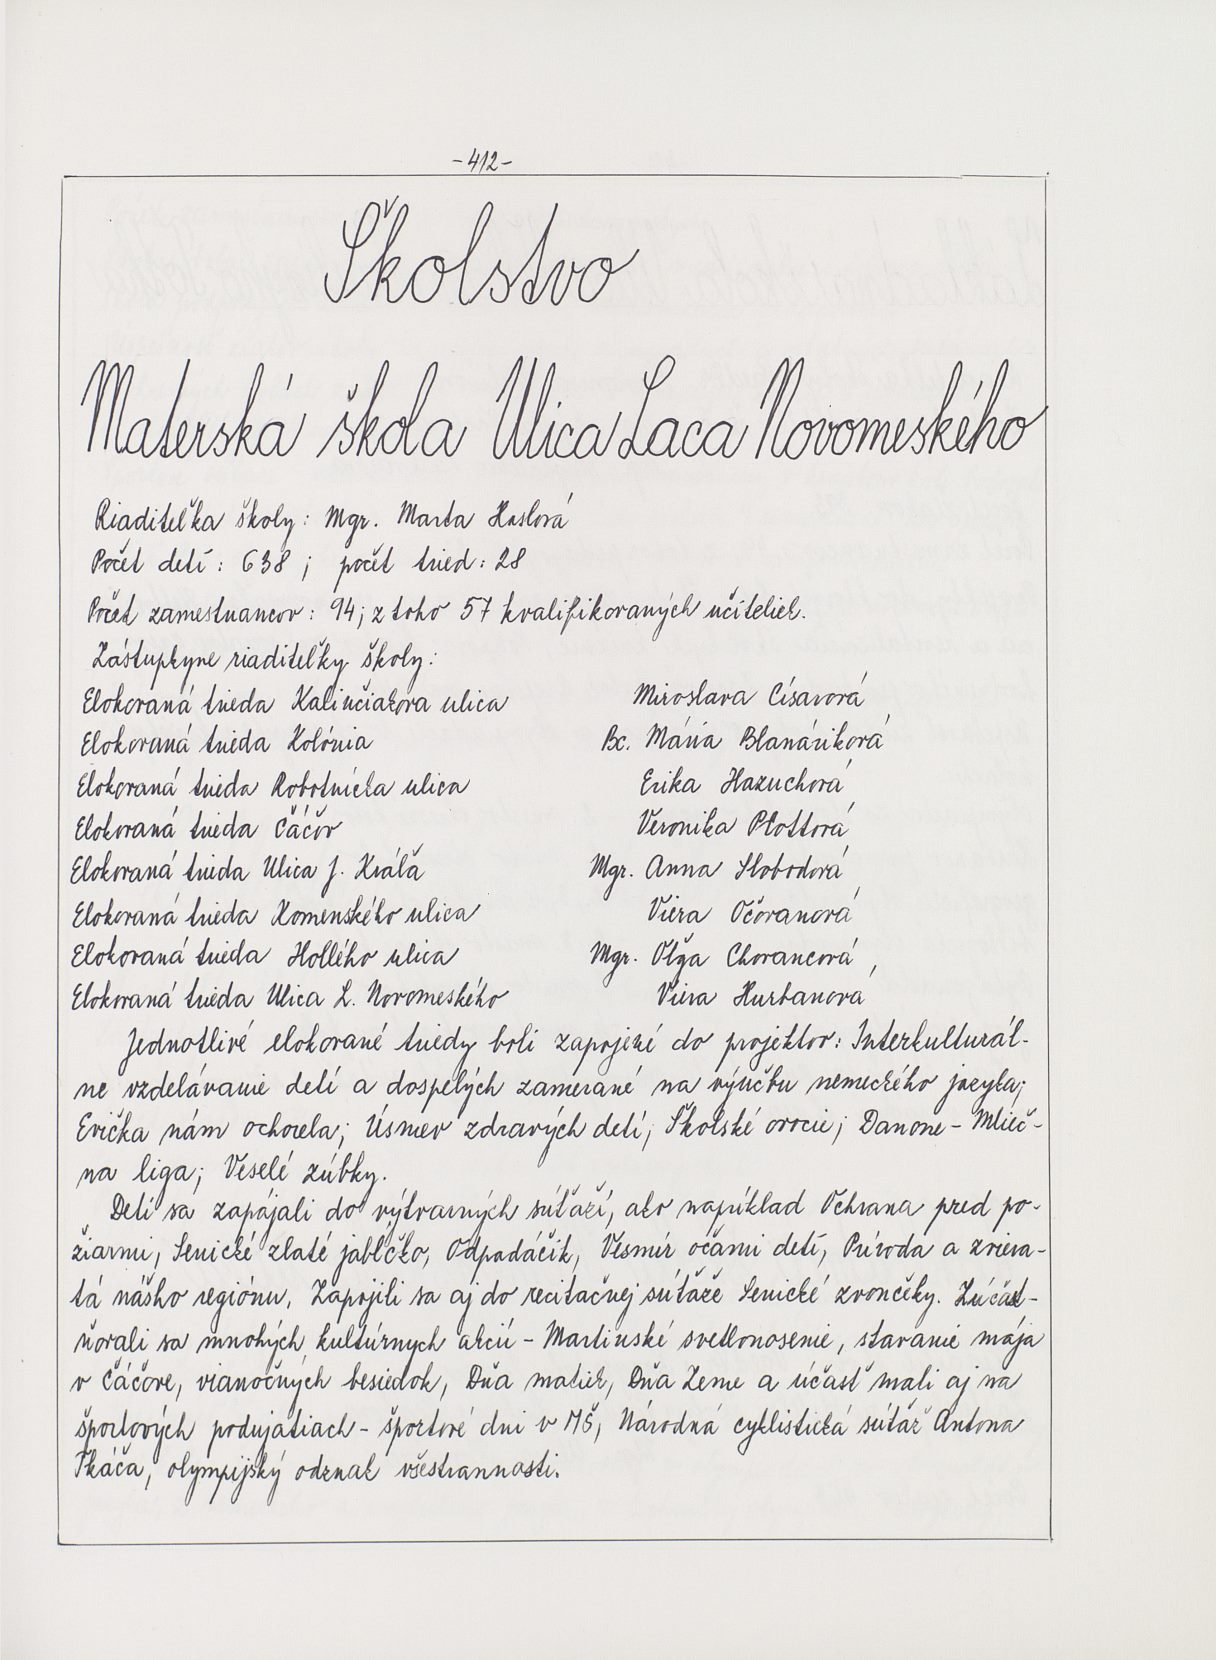 -412-
Školstvo
Materská škola Ulica Laca Novomeského
Riaditeľka školy: Mgr. Marta Haslová
Počet detí: 638; počet tried: 28
Počet zamestnancov: 94; z toho 57 kvalifikovaných učiteliek.
Zástupkyne riaditeľky školy:
Elokovaná trieda Kalinčiakova ulica Miroslava Císarová
Elokovaná trieda Kolónia Bc. Mária Blanáriková
Elokovaná trieda Robotnícka ulica Erika Hazuchová
Elokovaná trieda Čáčov Veronika Plottová
Elokovaná trieda Ulica J. Kráľa Mgr. Anna Slobodová
Elokovaná trieda Komenského ulica Viera Očovanová
Elokovaná trieda Hollého ulica Mgr. Oľga Chovancová
Elokovaná trieda Ulica L. Novomeského Viera Hurbanová
Jednotlivé elokované triedy boli zapojené do projektov: Interkulturál-
ne vzdelávanie detí a dospelých zamerané na výučbu nemeckého jazyka;
Evička nám ochorela; Úsmev zdravých detí; Školské ovocie; Danone - Mlieč-
na liga; Veselé zúbky.
Deti sa zapájali do výtvarných súťaží, ako napríklad Ochrana pred po-
žiarmi, Senické zlaté jabĺčko, Odpadáčik, Vesmír očami detí, Príroda a zviera-
tá nášho regiónu. Zapojili sa aj do recitačnej súťaže Senické zvončeky. Zúčast-
ňovali sa mnohých kultúrnych akcií - Martinské svetlonosenie, stavanie mája
v Čáčove, vianočných besiedok, Dňa matiek, Dňa Zeme a účasť mali aj na
športových podujatiach - športové dni v MŠ, Národná cyklistická súťaž Antona
Tkáča, olympijský odznak všestrannosti.